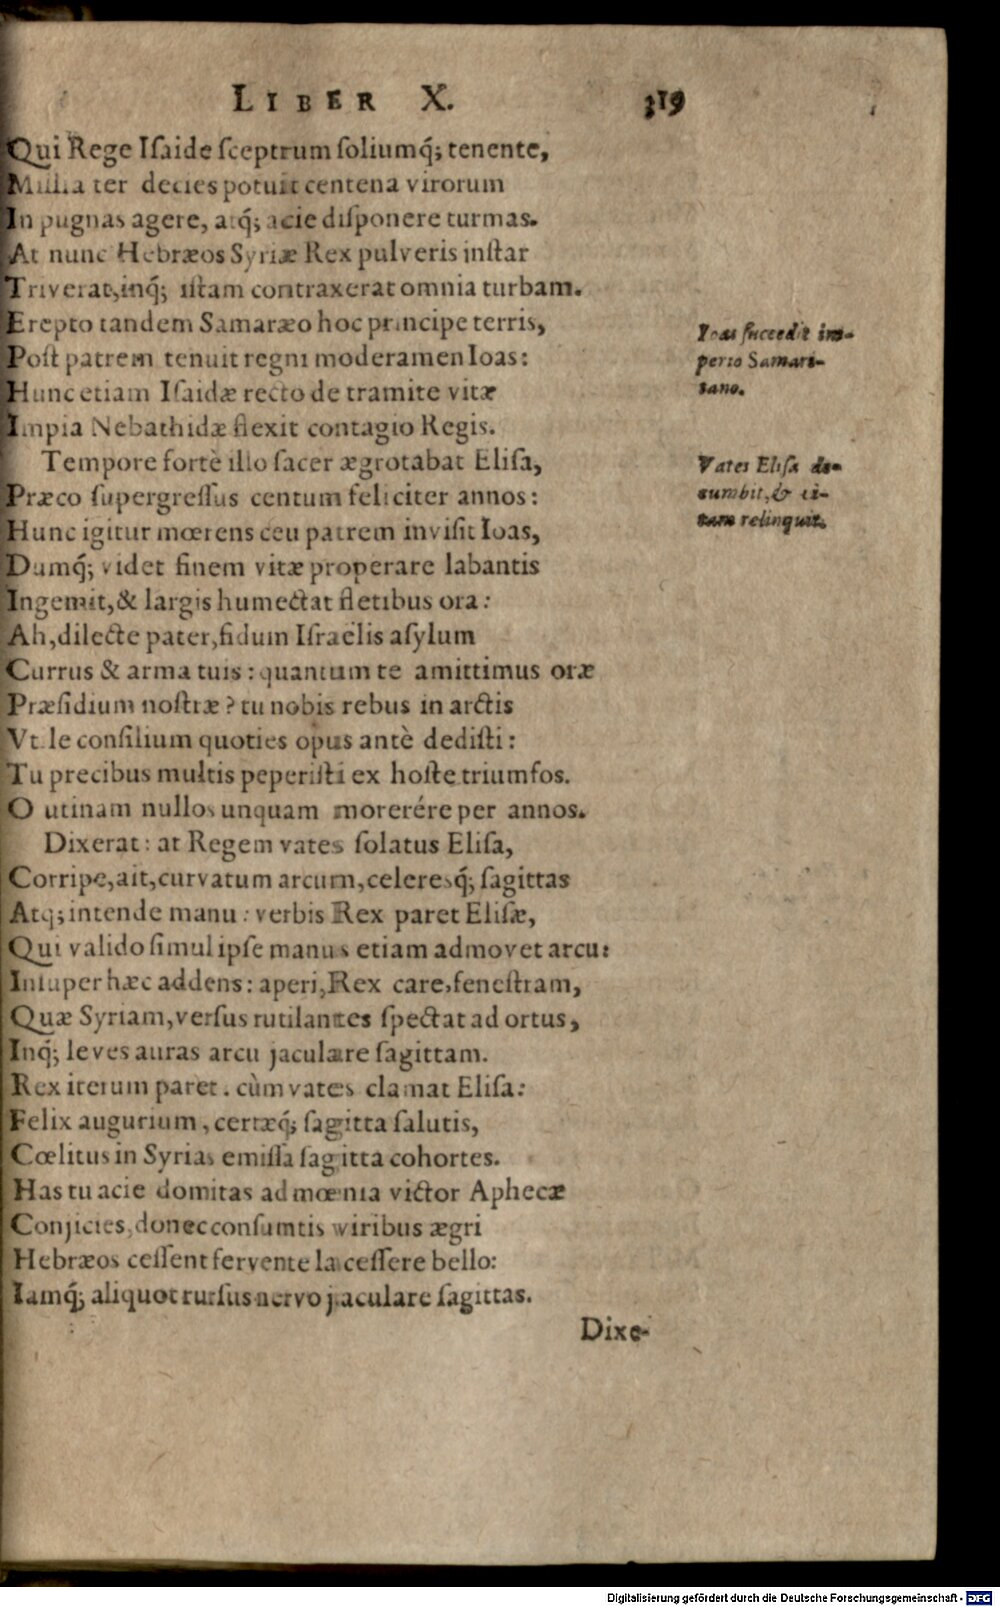 LIBER X. 319
Qui Rege Isaide sceptrum soliumq́; tenente,
Millia ter decies potuit centena virorum
In pugnas agere, atq́; acie disponere turmas.
At nunc Hebræos Syriæ Rex pulveris instar
Triverat, inq́; istam contraxerat omnia turbam.
Erepto tandem Samaræo hoc principe terris,
Post patrem tenuit regni moderamen Ioas:
Hunc etiam Isaidæ recto de tramite vitæ
Impia Nebathidæ flexit contagio Regis.
Ioas succedit im-
perio Samari-
tano.
Tempore fortè illo sacer ægrotabat Elisa,
Præco supergressus centum feliciter annos:
Hunc igitur mœrens ceu patrem invisit Ioas,
Dumq́; videt finem vitæ properare labantis
Ingemit, & largis humectat fletibus ora:
Vates Elisa de-
cumbit, & vi-
tam relinquit.
Ah, dilecte pater, fidum Israëlis asylum
Currus & arma tuis: quantum te amittimus oræ
Præsidium nostræ? tu nobis rebus in arctis
Vtile consilium quoties opus antè dedisti:
Tu precibus multis peperisti ex hoste triumfos.
O utinam nullos unquam morerére per annos.
Dixerat: at Regem vates solatus Elisa,
Corripe, ait, curvatum arcum, celeresq́; sagittas
Atq; intende manu: verbis Rex paret Elisæ,
Qui valido simul ipse manus etiam admovet arcu:
Insuper hæc addens: aperi, Rex care, fenestram,
Quæ Syriam, versus rutilantes spectat ad ortus,
Inq́; leves auras arcu jaculare sagittam.
Rex iterum paret. cùm vates clamat Elisa:
Felix augurium, certæq́; sagitta salutis,
Cœlitus in Syrias emissa sagitta cohortes.
Has tu acie domitas ad mœnia victor Aphecæ
Conjicies, donec consumtis viribus ægri
Hebræos cessent fervente lacessere bello:
Iamq́; aliquot rursus nervo jaculare sagittas.
Dixe-
Digitalisierung gefördert durch die Deutsche Forschungsgemeinschaft - DFG